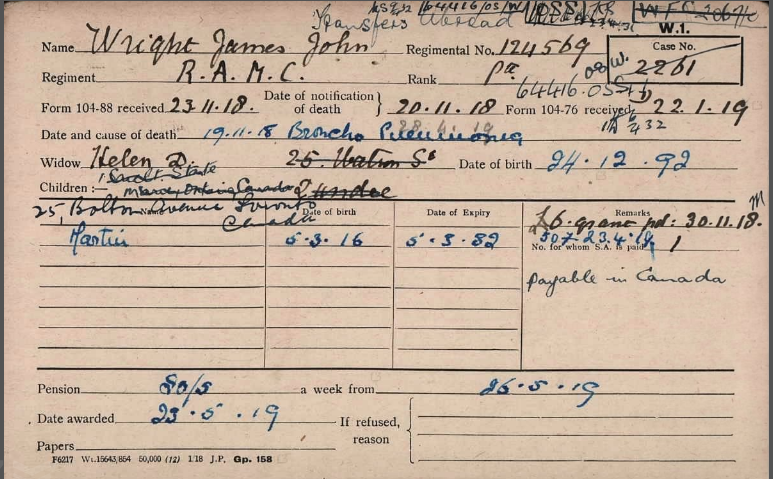 Transfers Abroad
W.1.
Name Wright James John Regimental No. 124569 Case No. 2261
Regiment R.A.M.C. Rank Pte
64416.OS
Form 104-88 received 23.11.18. Date of notification of death } 20.11.18 Form 104-76 received 22.1.19
Date and cause of death 19.11.18 Broncho Pneumonia
Widow Helen D. 25. Watson St Date of birth 24.12.92
Dundee
Children :—
25, Bolton Avenue Toronto
Canada
Name Date of birth Date of Expiry Remarks
£5. grant pd: 30.11.18.
Martin 5.3.16 5.3.32 23.4.19
No. for whom S.A. is paid 1
payable in Canada
Pension 20/5 a week from 26.5.19
Date awarded 23.5.19 If refused, reason
Papers
F6217 Wt.15643,854 50,000 (12) 1/18 J.P. Gp. 158